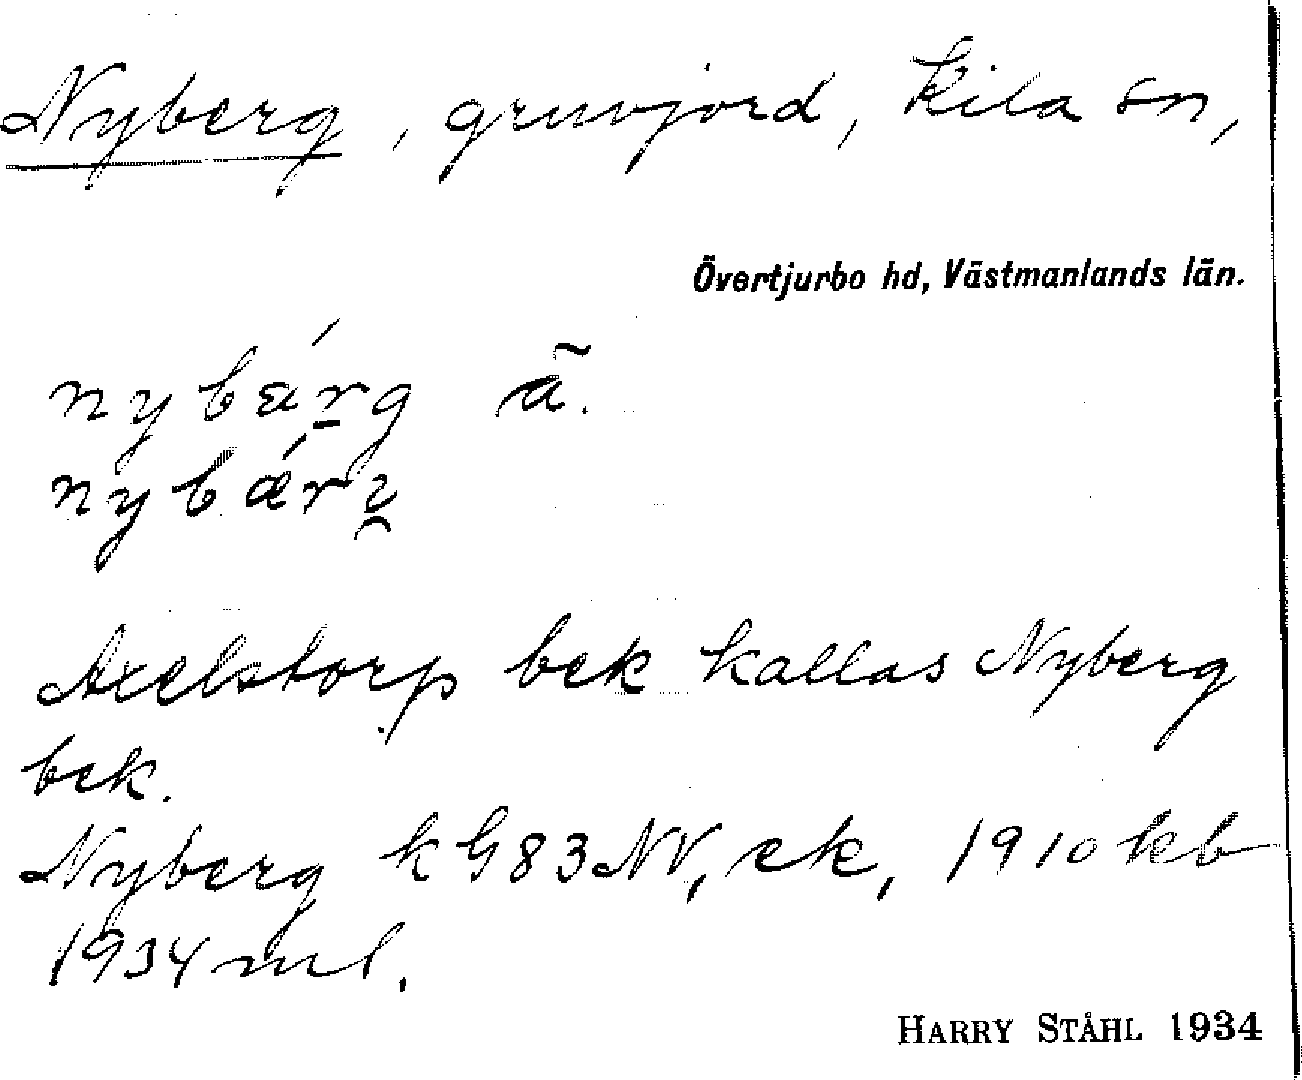 Nyberg, gruvjord, Kila sn,
Övertjurbo hd, Västmanlands län.
nybärg ä̃.
nybǽrv
Axelstorp bek kallas Nyberg
bek.
Nyberg k G83NV, ek, 1910 kb
1934 ml.
HARRY STÅHL 1934